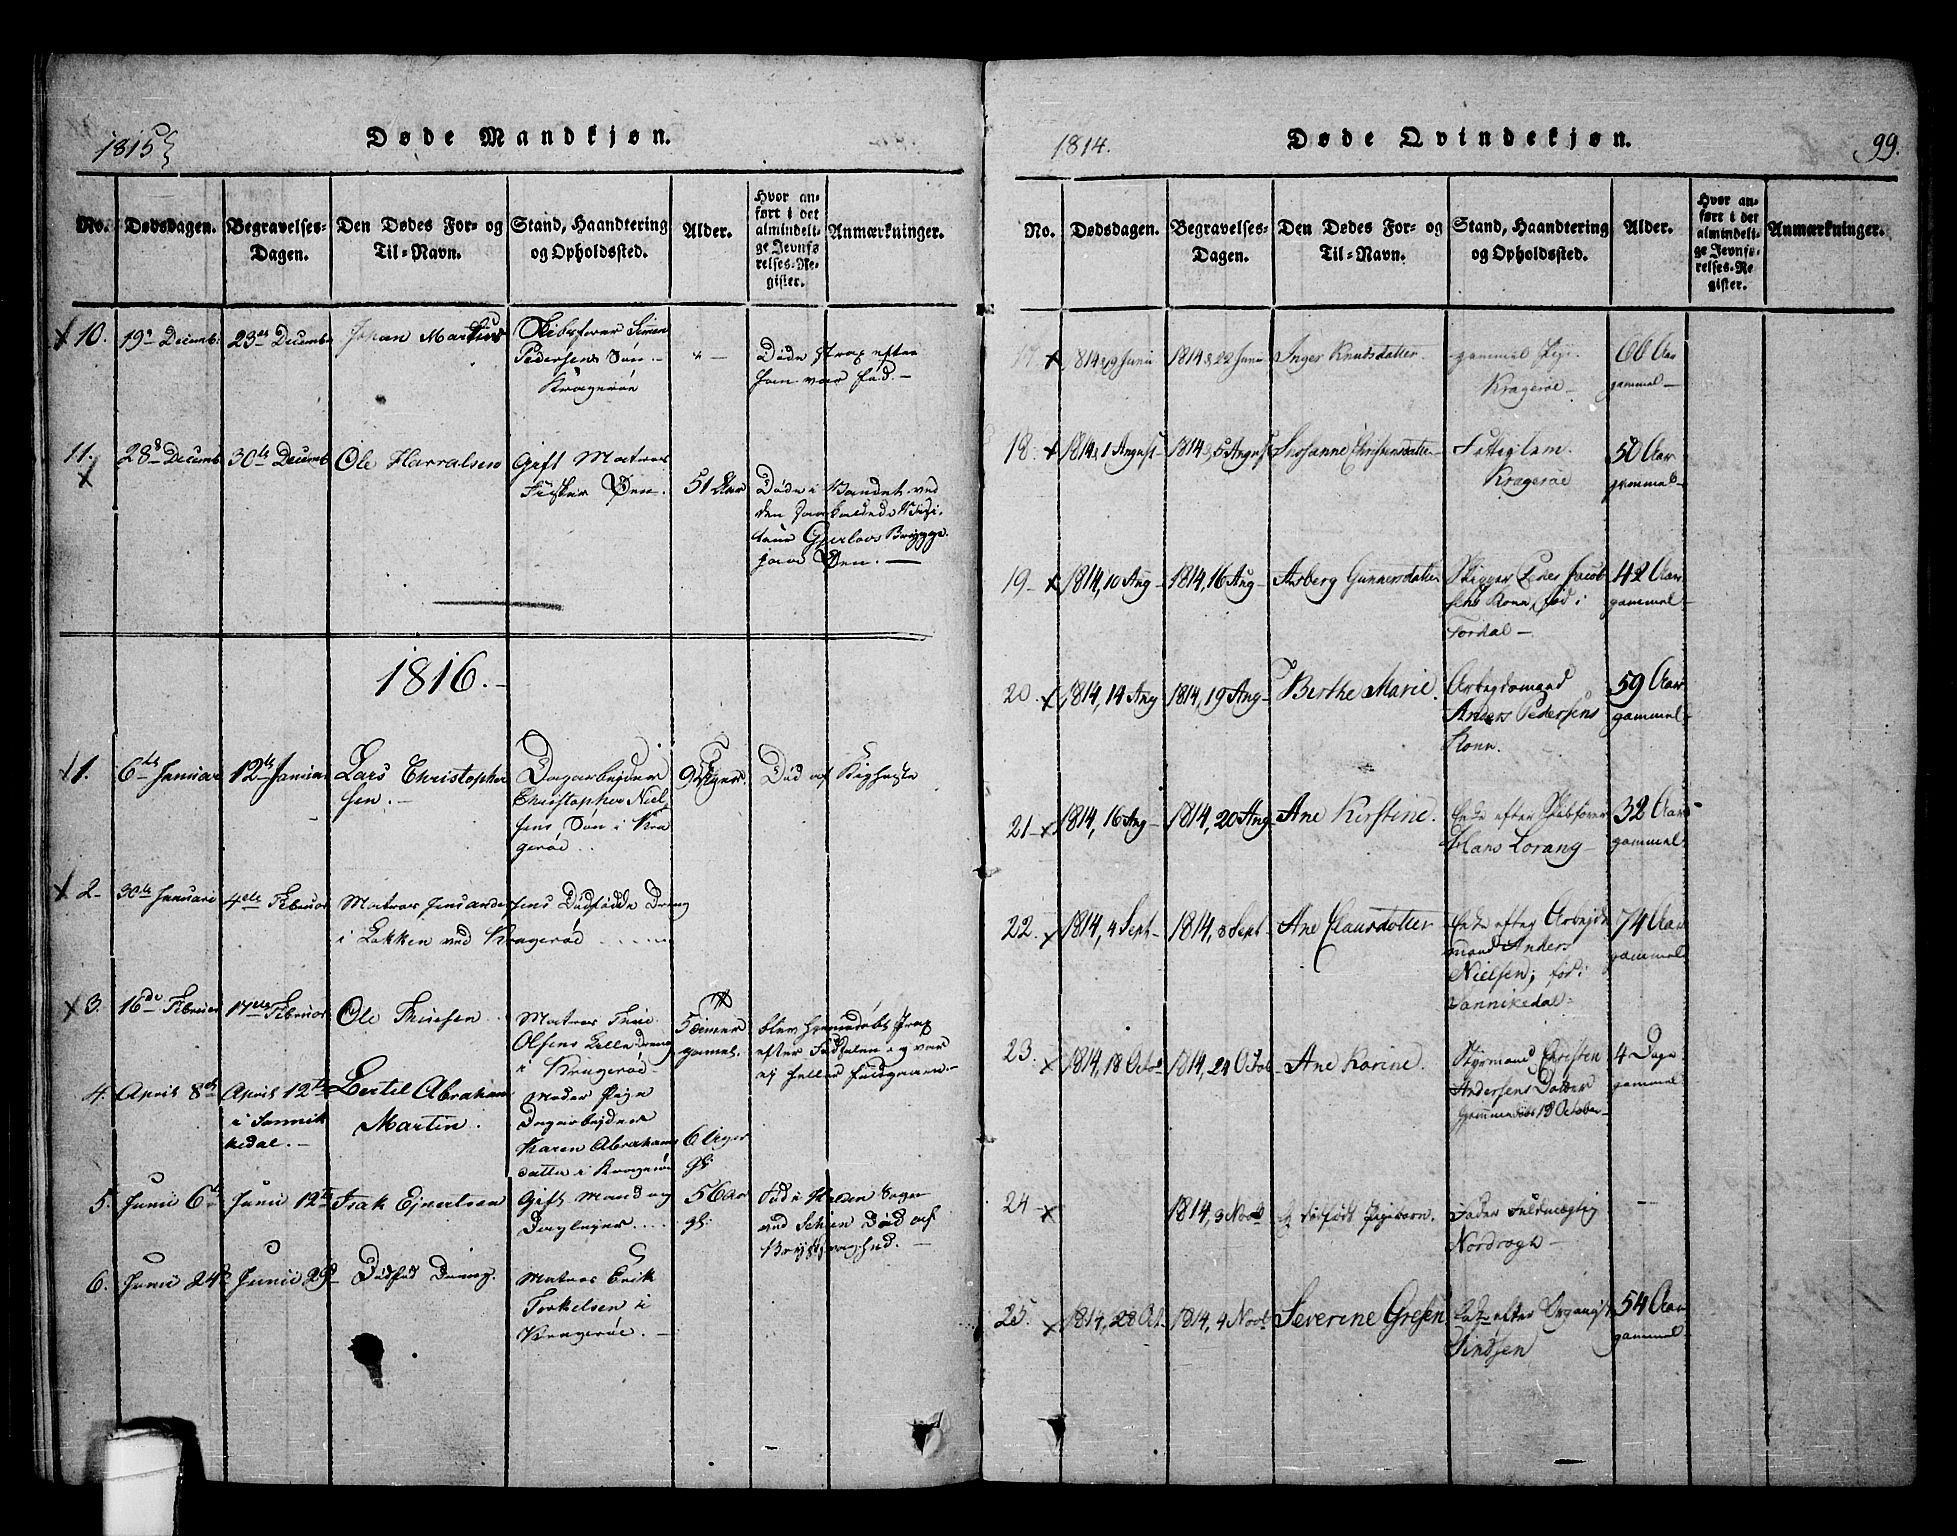 1815
Døde Mandkjøn.
No.
Dødsdagen.
Begravelses-
Dagen.
Den Dødes For- og
Til-Navn.
Stand, Haandtering
og Opholdssted.
Alder.
Hvor an-
ført i det
almindeli-
ge Jevnfø
relses-Re-
gister.
Anmærkninger.
10. 19de Decemb. 23de Decemb Johan Martius
Skibsfører Simen
Pedersens Søn.
Kragerøe
Døde strax efter
han var fød.
11. 28de Decemb 30te Decemb Ole Harralsen
Gift Matros
Øen. 51 Aar
Døde i Vandet ved
den saakaldede
Brygge
paa Øen.
1816.
1. 6te Januar 12te Januar Lars Christopher
sen.
Dagarbejder
Christopher Niel
sens Søn i Kra
gerøe
9 Uger. Død af Kighoste
2. 30te Januari 4de Februar Matros Jens Ander
sens Dødfødde Dreng
i Løkken ved Kragerøe
3. 16de Februar 17de Februar Ole Thuesen
Matros Thue
Olsens Lille Dreng
i Kragerøe
5 Timer
gamel.
blev hjemmedøbt strax
efter Fødselen og var
ej heller
4. April 8de April 12te
i Sannik
kedal.
Bertil Abraham
Martin.
Moder Pige
Dagarbejder
Karen Abrahams
datter i Kragerøe
6 Uger
gl:
5. Junii 6te Junii 12te Isak Ejvertsen
Gift Mand og
Daglejer
56 Aar
gl:
Fød i Sogn
ved Schien Død af
Brystsvaghed.
6. Junii 24de Junii 29de Dødfød Dreng.
Matros Erik
Torkelsen i
Kragerøe.
1814.
Døde Qvindekjøn.
99.
No.
Dødsdagen.
Begravelses-
Dagen.
Den Dødes For- og
Til-Navn.
Stand, Haandtering
og Opholdssted.
Alder.
Hvor an-
ført i det
almindeli-
ge Jevnfø-
relses-Re
gister.
Anmærkninger.
17. 1814, 19 Junii 1814, 22 Junii Inger Knudsdatter.
gammel Pige.
Kragerøe
66 Aar
gammel
18. 1814, 1 August 1814, 5 August Susanne Christensdatter
Fattiglem.
Kragerøe
50 Aar
gammel
19 1814, 10 Aug 1814, 16 Aug Aasberg Gunnersdatter
Enes Jacob
sens Kone, fød i
Tordal
42 Aar
gammel
20. 1814, 14 Aug 1814, 19 Aug Berthe Marie.
Arbejdsmand
Anders Pedersens
Kone.
59 Aar
gammel
21 1814, 16 Aug 1814, 20 Aug Ane Kirstine.
Enke efter Skibsfører
Hans Lorang
32 Aar
gammel
22. 1814, 4 Sept 1814, 8 Sept Ane Clausdatter
Enke efter Arbejds
mand Anders
Nielsen; fød i
Sannikedal
74 Aar
gammel
23. 1814, 18 Octo 1814, 24 Octob Ane Karine.
Styrmand Christen
Andersens Datter
hjemmedøbt 18 October
4 Dage
gammel
24 1814, 3 Novb Et dødfødt Pigebarn.
Fader Fuldmægtig
Nordvogt
25. 1814, 28 Oct. 1814, 4 Novb Severine Gresen
Enke efter Organist
Sindsen
54 Aar
gammel